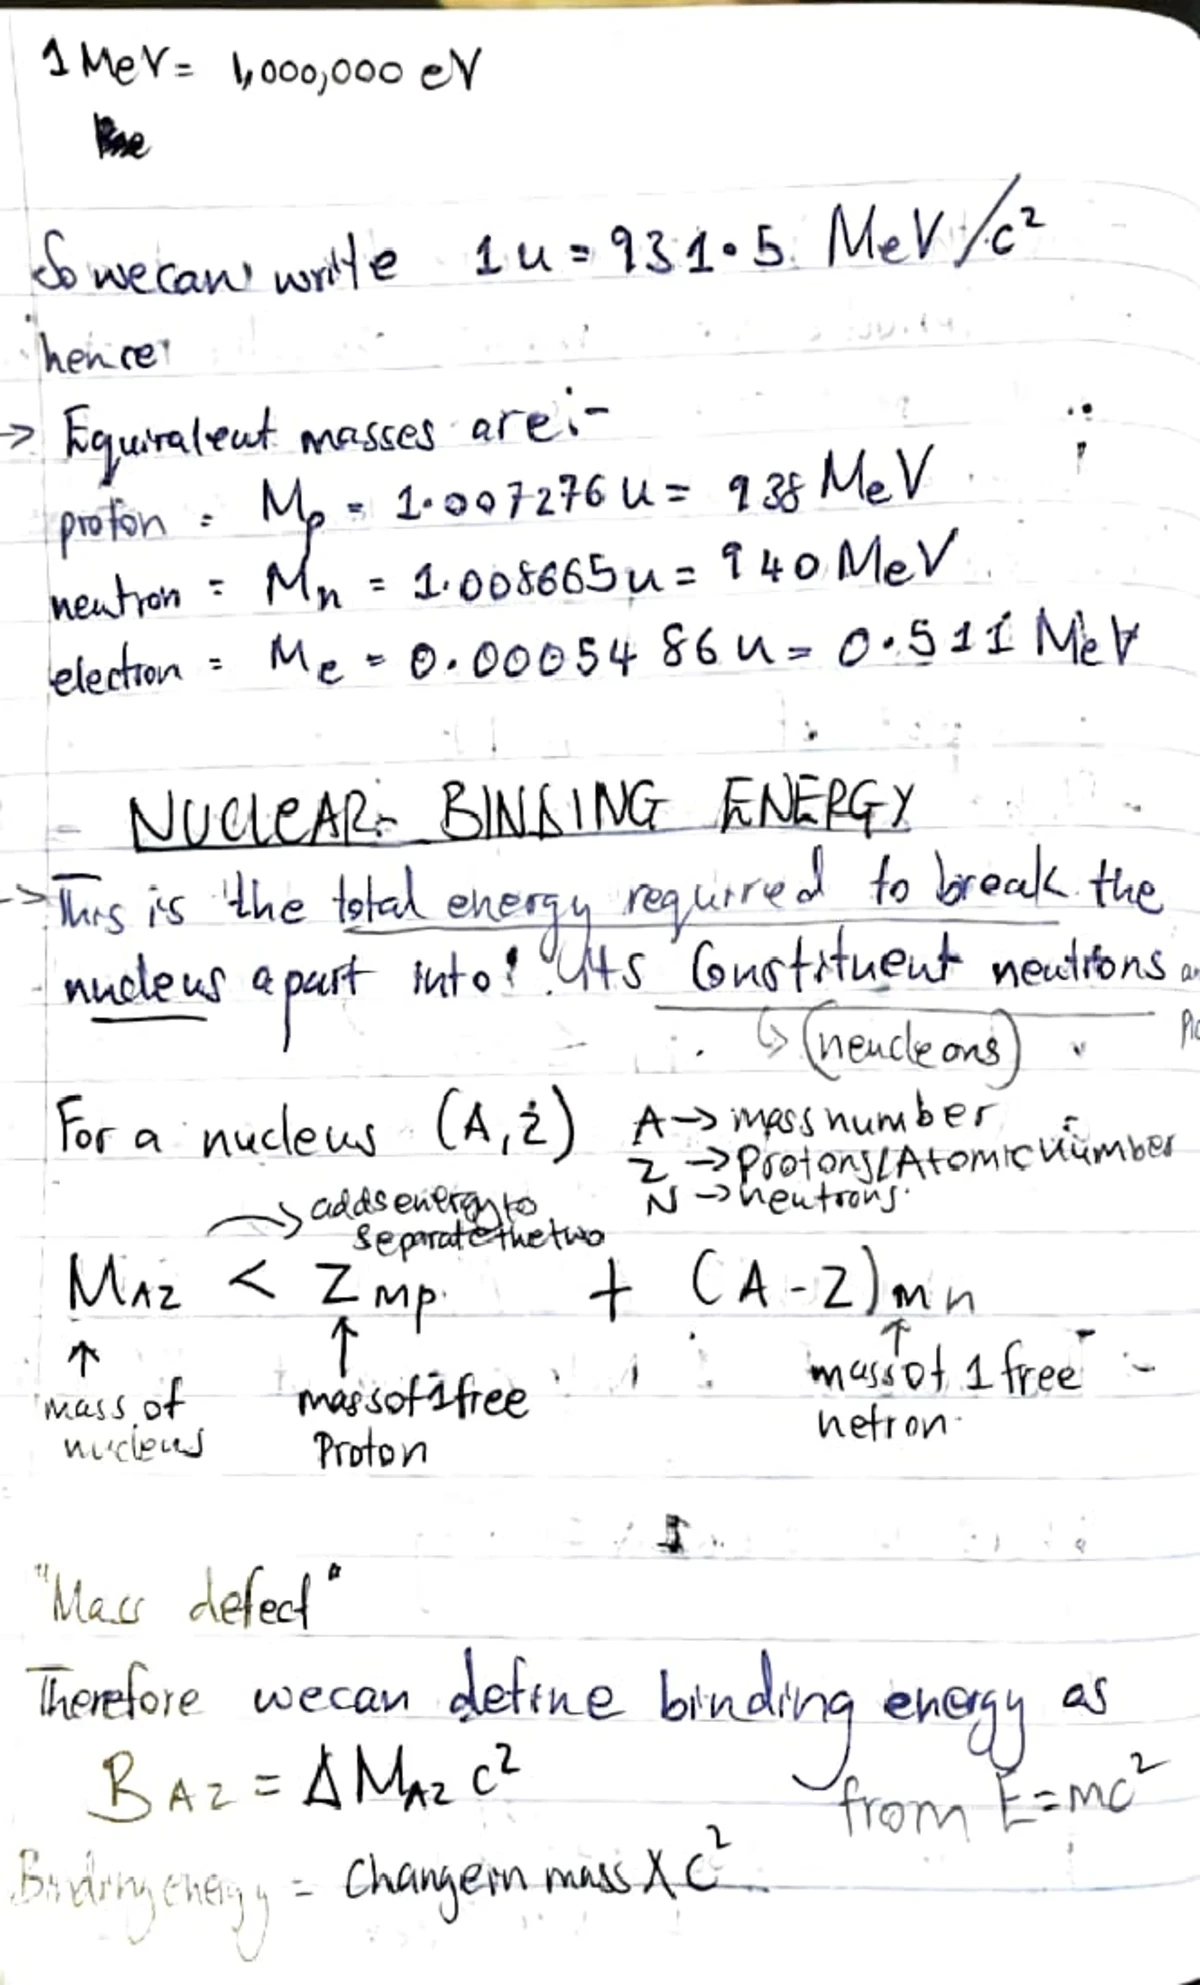 1 MeV = 1,000,000 eV
So we can write 1u = 931.5 MeV/c²
hence
→ Equivalent masses are:-
proton = Mp = 1.007276 u = 938 MeV
neutron = Mn = 1.008665 u = 940 MeV
electron = Me = 0.0005486 u = 0.511 MeV
NUCLEAR BINDING ENERGY
→ This is the total energy required to break the
nucleus apart into its Constituent neutrons
↳ (neucleons)
For a nucleus (A, Z) A → mass number
Z → Protons/Atomic number
N → neutrons.
→ adds energy to
separate the two
MAZ < Zmp + (A - Z)mn
↑ ↑ ↑
mass of nucleus mass of 1 free Proton mass of 1 free netron
"Mass defect"
Therefore we can define binding energy as
BAZ = ΔMAZ c² from E=mc²
Binding energy = Change in mass X c²